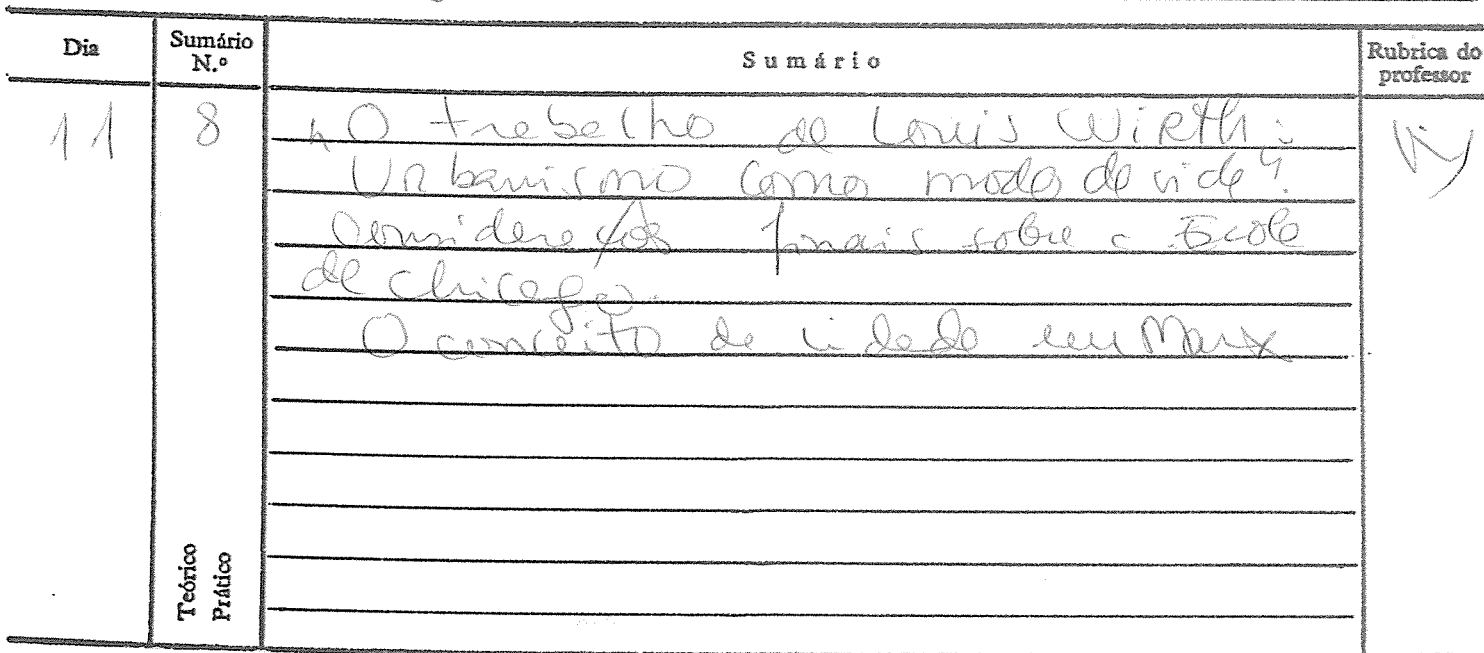 Dia
Sumário N.º
Sumário
Rubrica do professor
11
8
"O trabalho de Louis Wirth:
Urbanismo como modo de vida".
Considerações finais sobre a Escola
de Chicago.
O conceito de cidade em Marx
Teórico
Prático